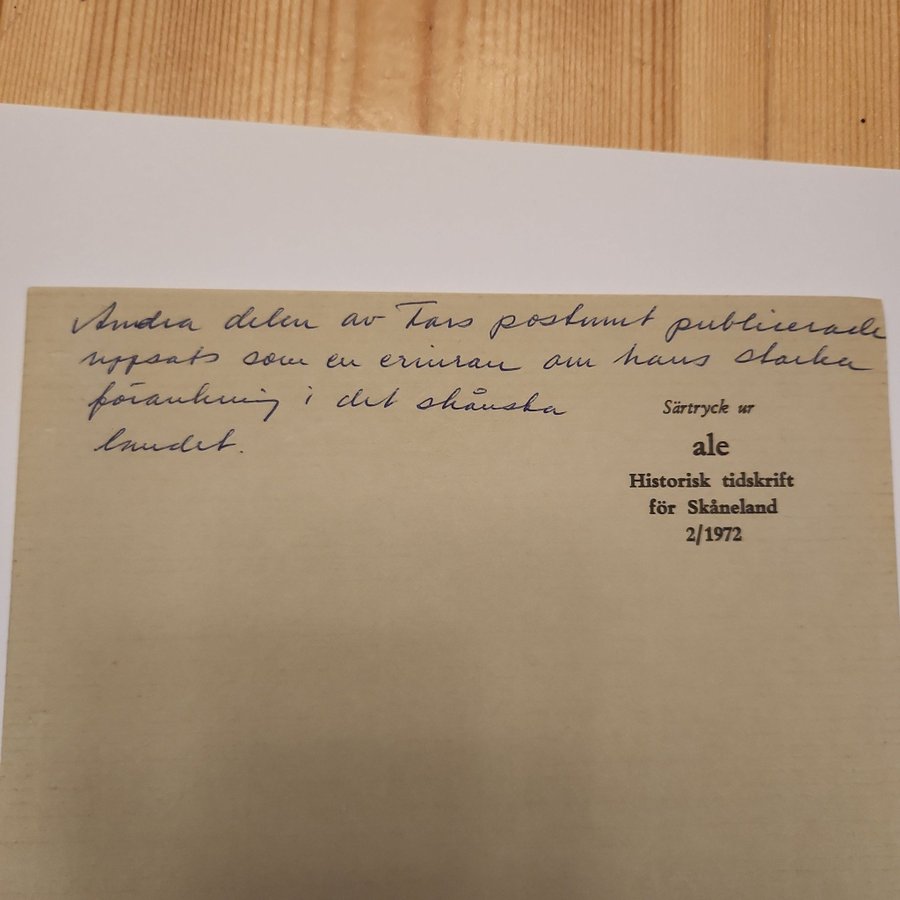 Andra delen av Fars postumt publicerade
uppsats som en erinran om hans starka
förankring i det skånska
landet.
Särtryck ur
ale
Historisk tidskrift
för Skåneland
2/1972